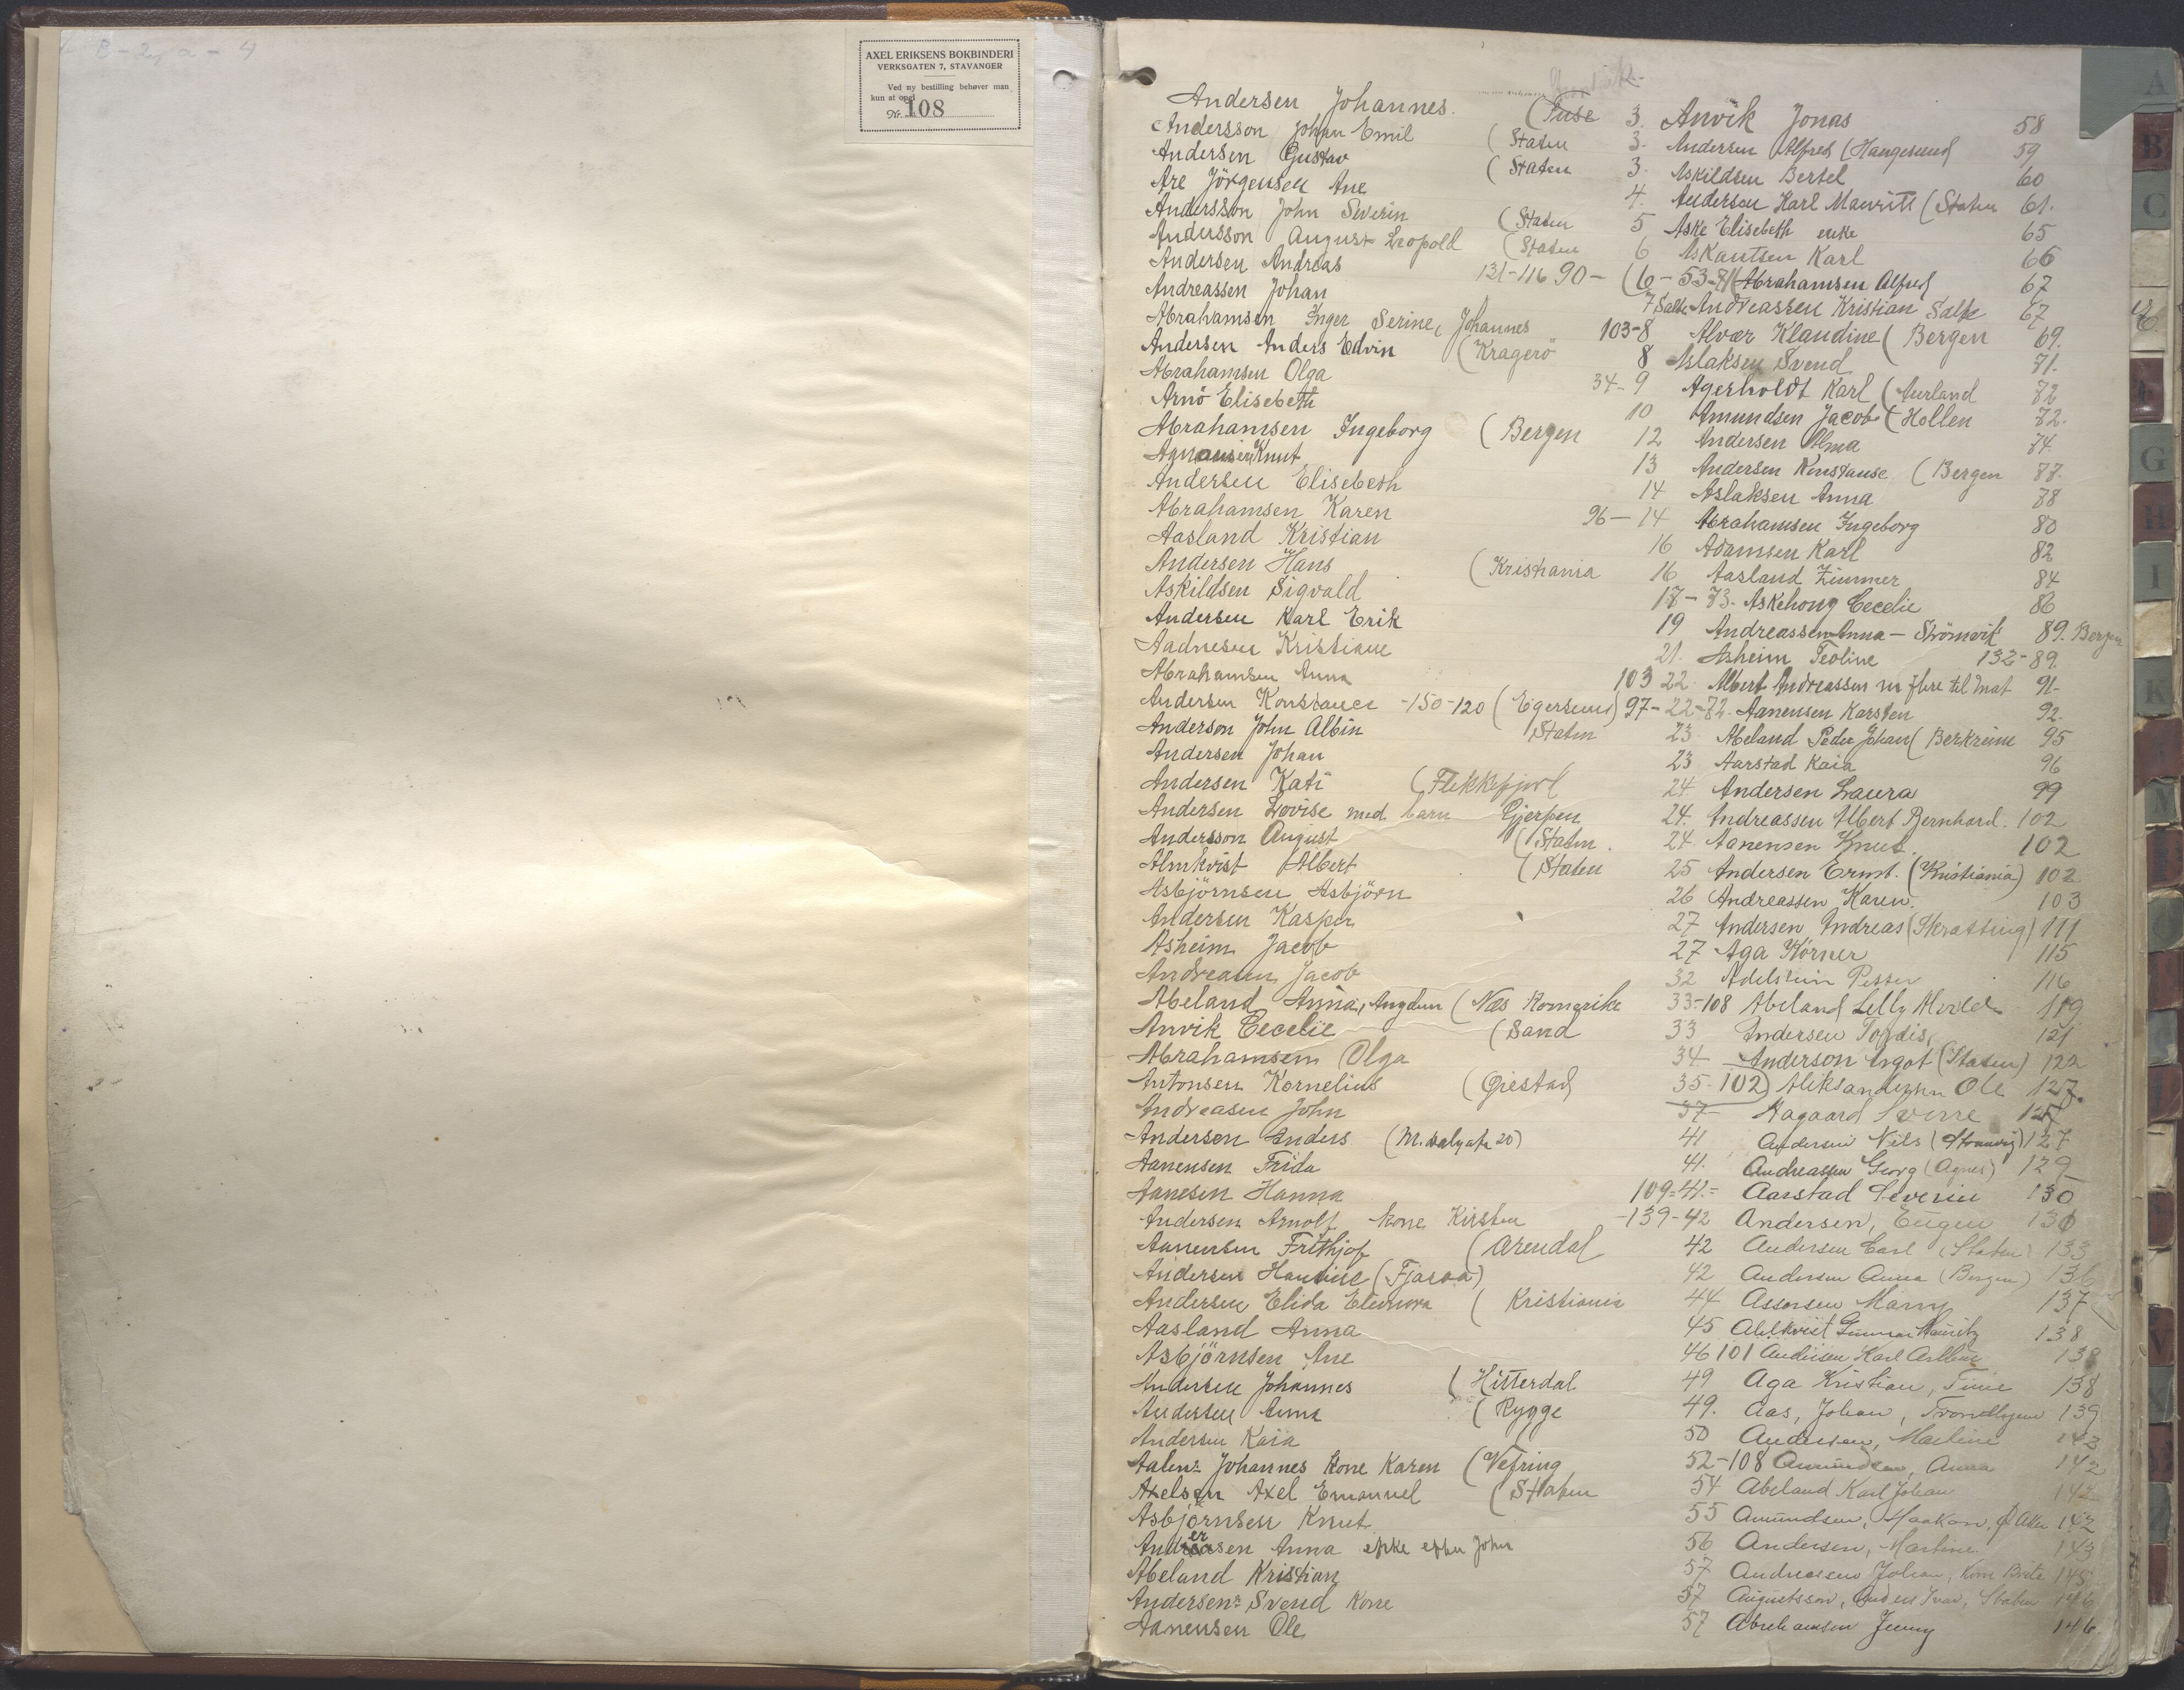 B - 2, a - 4
AXEL ERIKSENS BOKBINDERI
VERKSGATEN 7, STAVANGER
Ved ny bestilling behøver man
kun at opgi
Nr. 108
Andersen Johannes (Tuse 3
Andersson Johan Emil (Staten 3.
Andersen Gustav (Staten 3
Are Jörgensen Ane 4.
Andersson John Severin (Staten 5
Andersson August Leopold (Staten 6
Andersen Andreas 131-116 90- (6-53-81
Andreassen Johan 7
Abrahamsen Inger Serine, Johannes 103-8
Andersen Anders Edvin (Kragerö 8
Abrahamsen Olga 34-9
Arnö Elisebeth 10
Abrahamsen Ingeborg (Bergen 12
Knut 13
Andersen Elisebeth 14
Abrahamsen Karen 96-14
Aasland Kristian 16
Andersen Hans (Kristiania 16
Askildsen Sigvald 17-73.
Andersen Karl Erik 19
Aadnesen Kristiane 21.
Abrahamsen Anna 103 22.
Andersen Konstance -150-120 (Egersund) 97-22-72.
Anderson John Albin Staten 23
Andersen Johan 23
Andersen Kati (Flekkefjord 24
Andersen Lovise med barn Gjerpen 24.
Andersson August (Staten. 24.
Almkvist Albert (Staten 25
Asbjörnsen Asbjörn 26
Andersen Kasper 27
Asheim Jacob 27
Andreasen Jacob 32
Abeland Anna, (Næs Romerike 33-108
Anvik Cecelie (Sand 33
Abrahamsen Olga 34
Antonsen Kornelius (Øiestad 35-102)
Andreasen John 37
Andersen Anders 41
Aanensen Frida 41.
Aanesen Hanna 109-41.-
Andersen Arnolf kone Kirsten -139-42
Aanensen Frithjof (Arendal 42
Andersen Hansine 42
Andersen Elida Eleonora (Kristiania 44
Aasland Anna 45
Asbjörnsen Ane 46 101
Andersen Johannes (Hitterdal 49
Andersen Anna (Rygge 49.
Andersen Kaia 50
Johannes Kone Karen (Vefring 52-108
Axelsen Axel Emanuel (Staten 54
Asbjörnsen Knut 55
Andersen Anna enke efter John 56
Abeland Kristian 57
Andersen Svend Kone 57
Aanensen Ole 57
Anvik Jonas 58
Andersen Alfred (Haugesund 59
Askildsen Bertel 60
Anderson Karl Mauritz (Staten 61.
Aske Elisebeth enke 65
Karl 66
Abrahamsen Alfred 67
Andreassen Kristian Salte 67
Alvær Klaudine (Bergen 69.
Aslaksen Svend 71.
Agerholdt Karl (Aurland 72
Amundsen Jacob (Hollen 72.
Andersen Alma 74.
Andersen Konstanse (Bergen 77.
Aslaksen Anna 78
Abrahamsen Ingeborg 80
Adamsen Karl 82
Aasland Zimmer 84
Askehoug Cecelie 86
Andreassen Anna - Strömvik 89. Bergen
Asheim Teoline 132-89.
Albert Andreassen 91-
Aanensen Karsten 92.
Abeland Peder Johan (Berkreim 95
Aarstad Kaia 96
Andersen Laura 99
Andreassen Albert Bernhard. 102
Aanensen Knut. 102
Andersen Ernst. (Kristiania) 102
Andreassen Karen. 103
Andersen Andreas 111
Aga Körner 115
Adelstein Petter 116
Abeland Lelly 119
Andersen Tordis, 121
Anderson (Staten) 122
Aleksandersen Ole 127.
Aagaard Sverre 127
Andersen Nils 127
Andreassen Georg (Agnes) 129
Aarstad Severin 130
Andersen, Eugen 130
Andersen Carl (Staten) 133
Andersen Anna (Bergen) 136
Assersen Marny 137
Ahlkvist Gunnar Mauritz 138
Andersen Karl 138
Aga Kristian, Time 138
Aas, Johan, Trondhjem 139
Andersen, Martine 142
Amundsen, Anna 142
Abeland Karl Johan 142
Amundsen, Haakon, 142
Andersen, Martine. 143
Andreassen Johan, Kone 145
Augustsson, Anders Ivar, Staten 146
Abrahamsen Jenny 146.
A
B
C
G
H
I
K
V